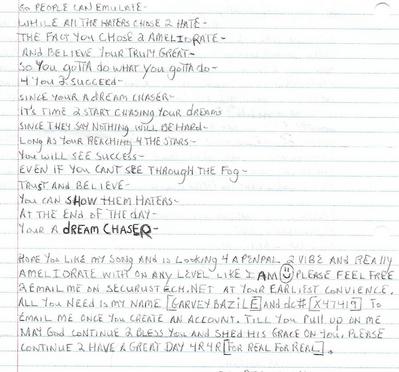 SO PEOPLE CAN EMULATE-
WHILE All THE HATERS CHOSE 2 HATE-
THE FACT YOU CHOSE 2 AMELIORATE-
AND BELIEVE YOUR TRULY GREAT-
SO YOU GOTTA DO WHAT YOU GOTTA DO-
4 YOU 2 SUCCEED-
SINCE YOUR A DREAM CHASER-
IT'S TIME 2 START CHASING YOUR DREAMS
SINCE THEY SAY NOTHING WILL BE HARD-
LONG AS YOUR REACHING 4 THE STARS-
YOU WILL SEE SUCCESS-
EVEN IF YOU CANT SEE THROUGH THE FOG-
TRUST AND BELIEVE-
YOU CAN SHOW THEM HATERS-
AT THE END OF THE DAY-
YOUR A DREAM CHASER-
HOPE YOU LIKE MY SONG AND IS LOOKING 4 A PENPAL 2 VIBE AND REALLY
AMELIORATE WITH ON ANY LEVEL LIKE I AM PLEASE FEEL FREE
2 EMAIL ME ON SECURUSTECH.NET AT YOUR EARLIEST CONVIENCE.
ALL YOU NEED IS MY NAME [GARVEY BAZILE] AND DC# [X47419] TO
EMAIL ME ONCE YOU CREATE AN ACCOUNT. TILL YOU PULL UP ON ME
MAY GOD CONTINUE 2 BLESS YOU AND SHED HIS GRACE ON YOU. PLEASE
CONTINUE 2 HAVE A GREAT DAY 4R4R [FOR REAL FOR REAL].